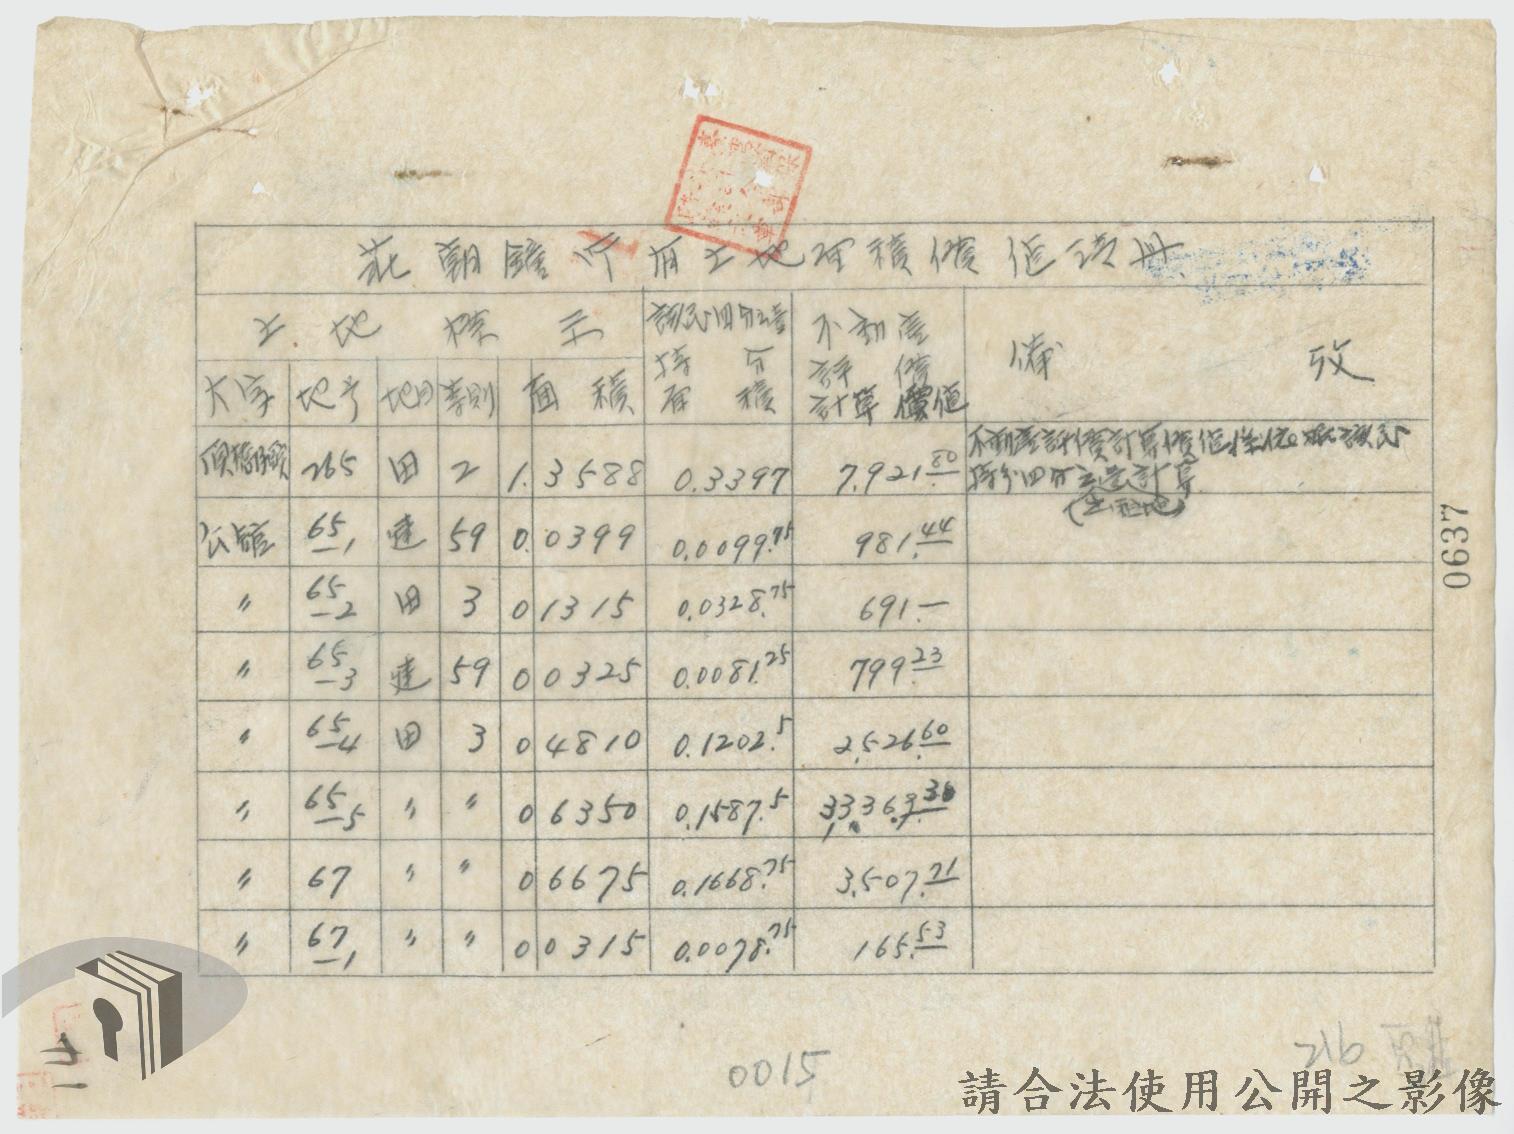 莊朝鐘所有土地面積價值清冊
土地標示 該民四分之壹持分面積 不動產評價計算價值 備攷
大字 地号 地目 等則 面積
265 田 2 1.3588 0.3397 7,921.80 不動產評價計算價值係依照該民
持分四分之壹計算
(出租地)
公館 65-1 建 59 0.0399 0.0099.75 981.44
〃 65-2 田 3 0 1315 0.0328.75 691.—
〃 65-3 建 59 0 0325 0.0081.25 799.23
〃 65-4 田 3 0 4810 0.1202.5 2,526.60
〃 65-5 〃 〃 0 6350 0.1587.5
〃 67 〃 〃 0 6675 0.1668.75 3,507.71
〃 67-1 〃 〃 0 0315 0.0078.75 165.53
0637
0015
216
請合法使用公開之影像